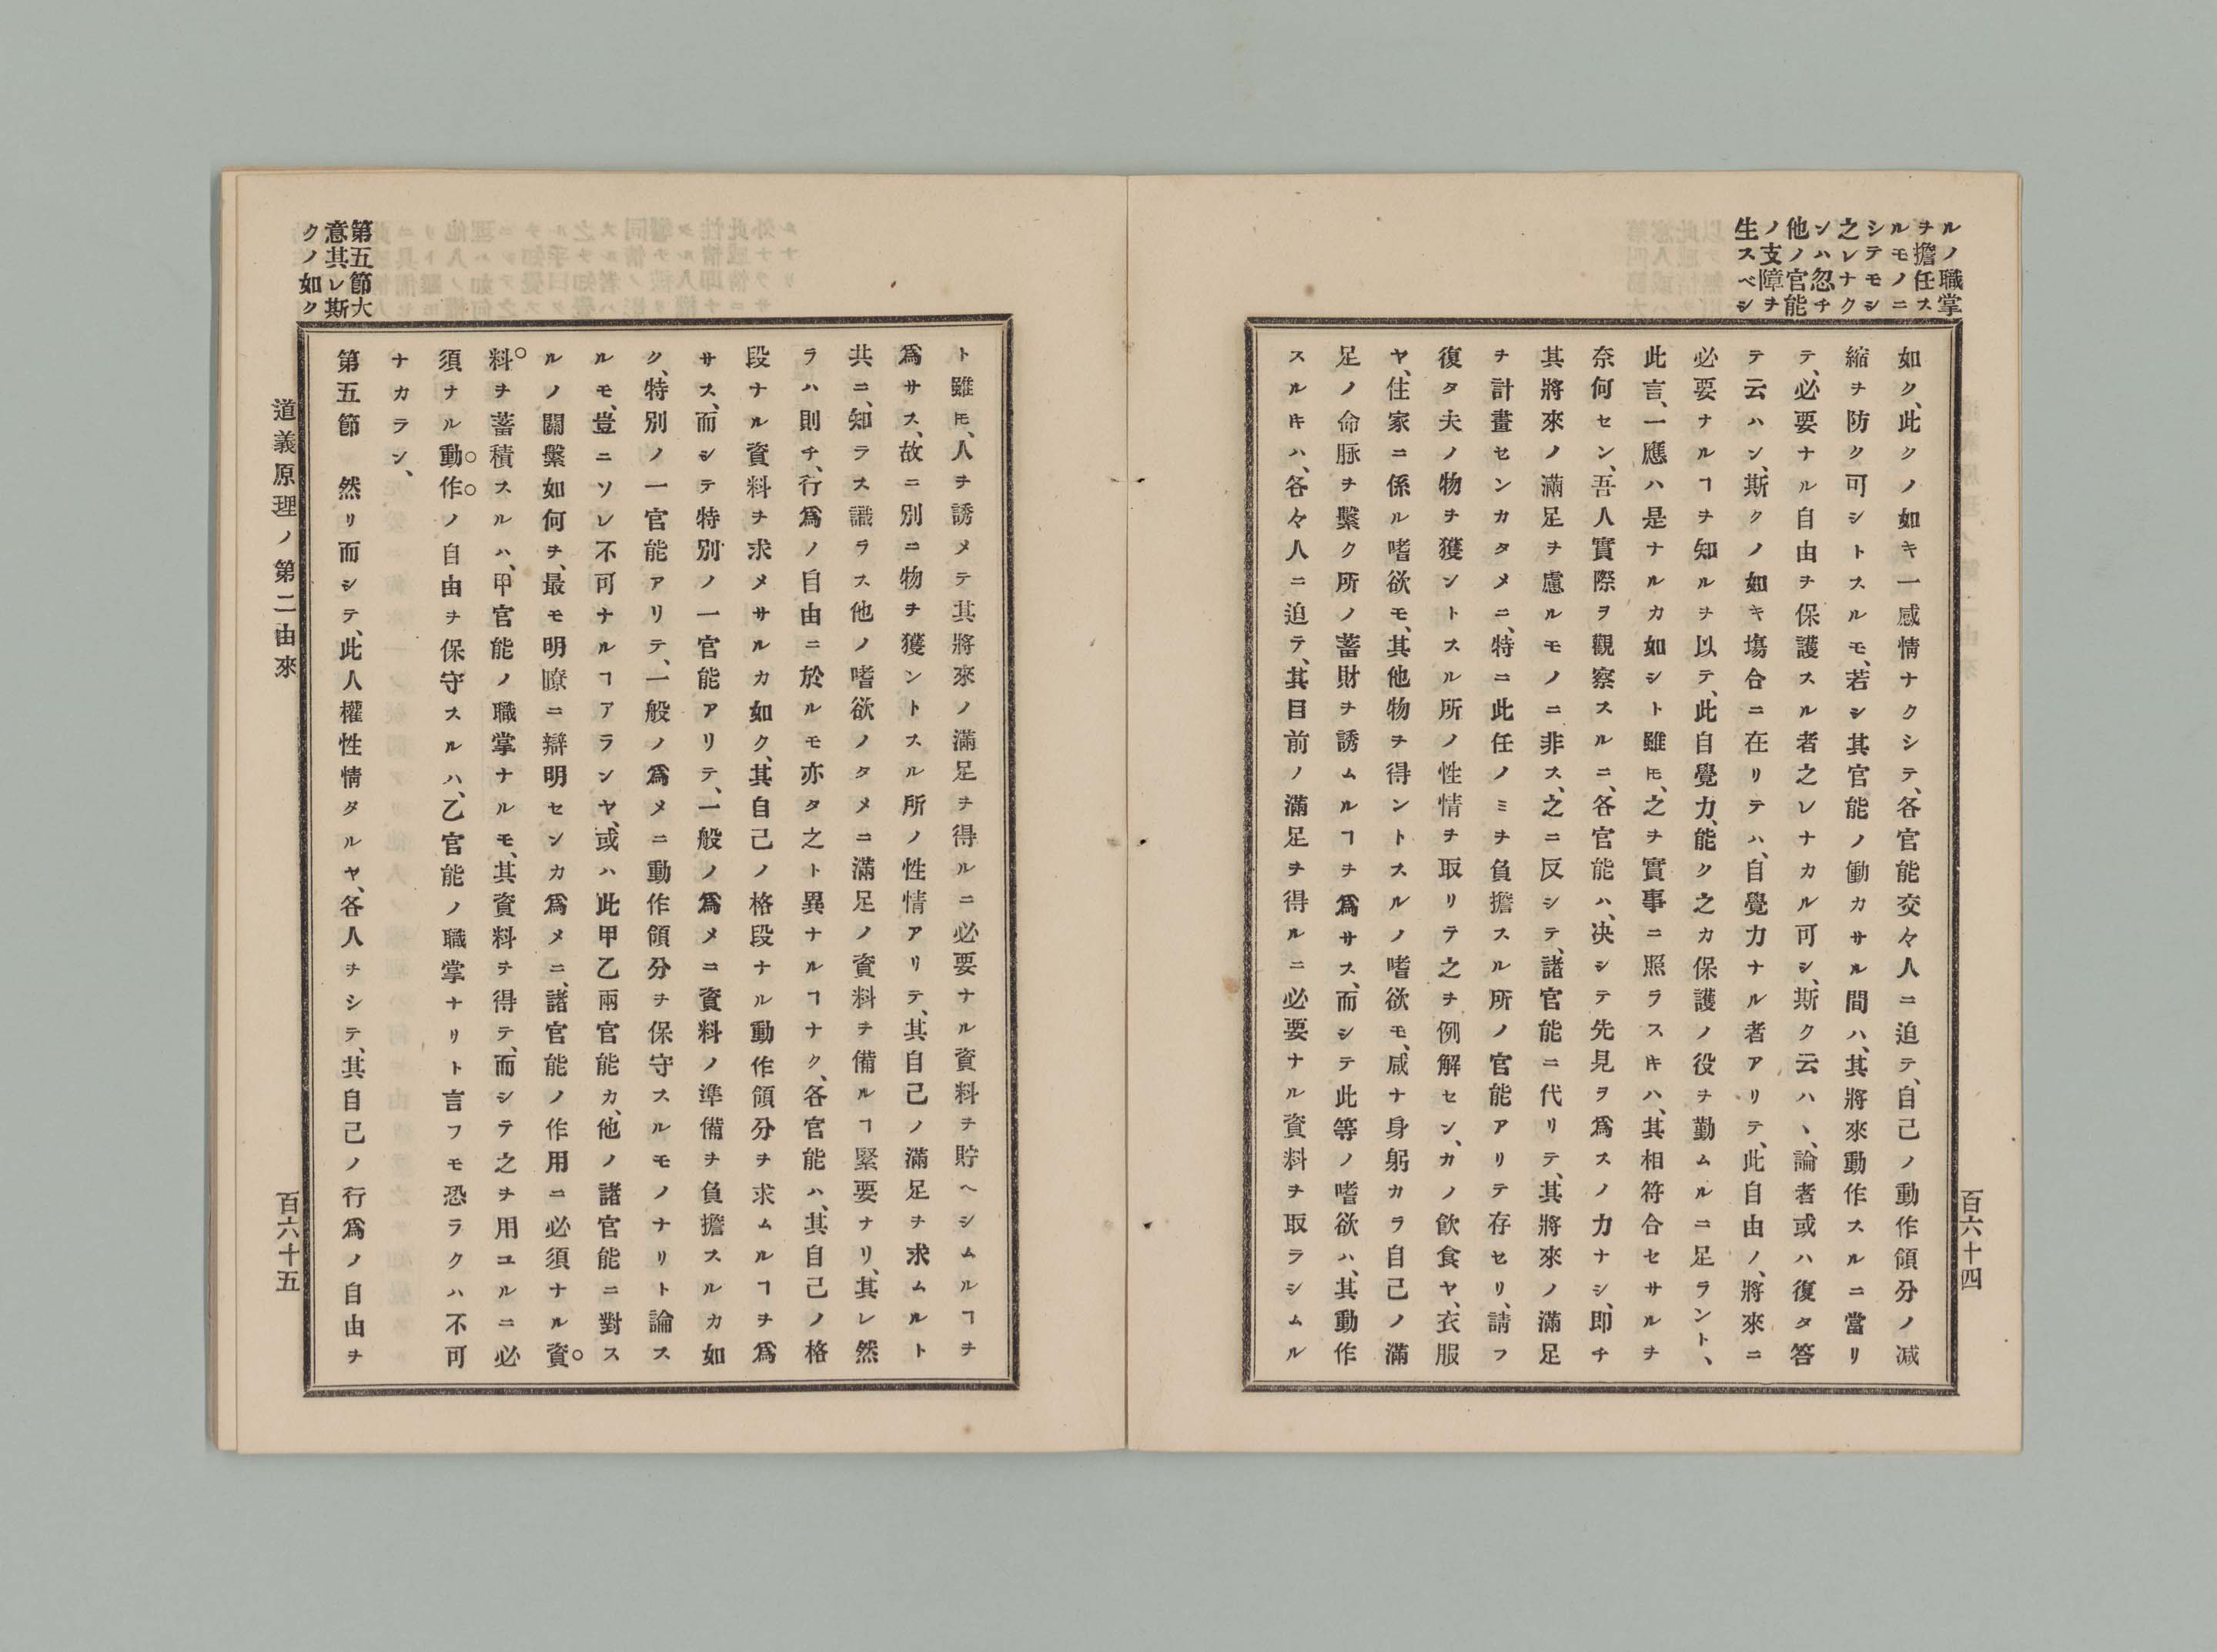 ルノ職掌
ヲ擔任ス
ルモノニ
シテモシ
之レナク
ンハ忽チ
他ノ官能
ノ支障ヲ
生スベシ
如ク、此クノ如キ一感情ナクシテ、各官能交々人ニ迫テ、自己ノ動作領分ノ减
縮ヲ防ク可シトスルモ、若シ其官能ノ働カサル間ハ、其將來動作スルニ當リ
テ、必要ナル自由ヲ保護スル者之レナカル可シ、斯ク云ハヽ、論者或ハ復タ答
テ云ハン、斯クノ如キ塲合ニ在リテハ、自覺力ナル者アリテ、此自由ノ、將來ニ
必要ナルヿヲ知ルヲ以テ、此自覺力、能ク之カ保護ノ役ヲ勤ムルニ足ラント、
此言、一應ハ是ナルカ如シト雖𪜈、之ヲ實事ニ照ラスキハ、其相符合セサルヲ
奈何セン、吾人實際ヲ觀察スルニ、各官能ハ、决シテ先見ヲ爲スノ力ナシ、即チ
其將來ノ滿足ヲ慮ルモノニ非ス、之ニ反シテ、諸官能ニ代リテ、其將來ノ滿足
ヲ計畫センカタメニ、特ニ此任ノミヲ負擔スル所ノ官能アリテ存セリ、請フ
復タ夫ノ物ヲ獲ントスル所ノ性情ヲ取リテ之ヲ例解セン、カノ飮食ヤ、衣服
ヤ、住家ニ係ル嗜欲モ、其他物ヲ得ントスルノ嗜欲モ、咸ナ身躬カラ自己ノ滿
足ノ命脉ヲ繫ク所ノ蓄財ヲ誘ムルヿヲ爲サス、而シテ此等ノ嗜欲ハ、其動作
スルキハ、各々人ニ迫テ、其目前ノ滿足ヲ得ルニ必要ナル資料ヲ取ラシムル
百六十四
ト雖𪜈、人ヲ誘メテ其將來ノ滿足ヲ得ルニ必要ナル資料ヲ貯ヘシムルヿヲ
爲サス、故ニ別ニ物ヲ獲ントスル所ノ性情アリテ、其自己ノ滿足ヲ求ムルト
共ニ、知ラス識ラス他ノ嗜欲ノタメニ滿足ノ資料ヲ備ルヿ緊要ナリ、其レ然
ラハ則チ、行爲ノ自由ニ於ルモ亦タ之ト異ナルヿナク、各官能ハ、其自己ノ格
段ナル資料ヲ求メサルカ如ク、其自己ノ格段ナル動作領分ヲ求ムルヿヲ爲
サス、而シテ特別ノ一官能アリテ、一般ノ爲メニ資料ノ準備ヲ負擔スルカ如
ク、特別ノ一官能アリテ、一般ノ爲メニ動作領分ヲ保守スルモノナリト論ス
ルモ、豈ニソレ不可ナルヿアランヤ、或ハ此甲乙兩官能カ、他ノ諸官能ニ對ス
ルノ關係如何ヲ、最モ明暸ニ辯明センカ爲メニ、諸官能ノ作用ニ必須ナル資
料ヲ蓄積スルハ、甲官能ノ職掌ナルモ、其資料ヲ得テ、而シテ之ヲ用ユルニ必
須ナル動作ノ自由ヲ保守スルハ、乙官能ノ職掌ナリト言フモ恐ラクハ不可
ナカラン、
第五節大
意其レ斯
クノ如ク
第五節　然リ而シテ、此人權性情タルヤ、各人ヲシテ、其自己ノ行爲ノ自由ヲ
道義原理ノ第二由來
百六十五